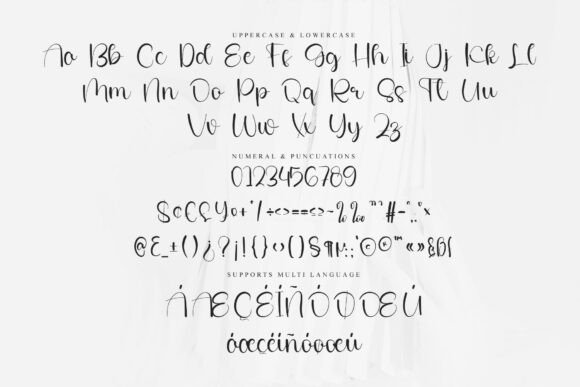 UPPERCASE & LOWERCASE
Aa Bb Cc Dd Ee Ff Gg Hh Ii Jj Kk Ll
Mm Nn Oo Pp Qq Rr Ss Tt Uu
Vv Ww Xx Yy Zz
NUMERAL & PUNCUATIONS
0123456789
$¢£¥0+*/÷<>=≠<>~%‰ªº#-
@€_±()¿?¡!{}‹›()§¶µ:;©®™«»&ß
SUPPORTS MULTI LANGUAGE
ÁÆÇÉÍÑÓØŒÚ
áæçéíñóøœú